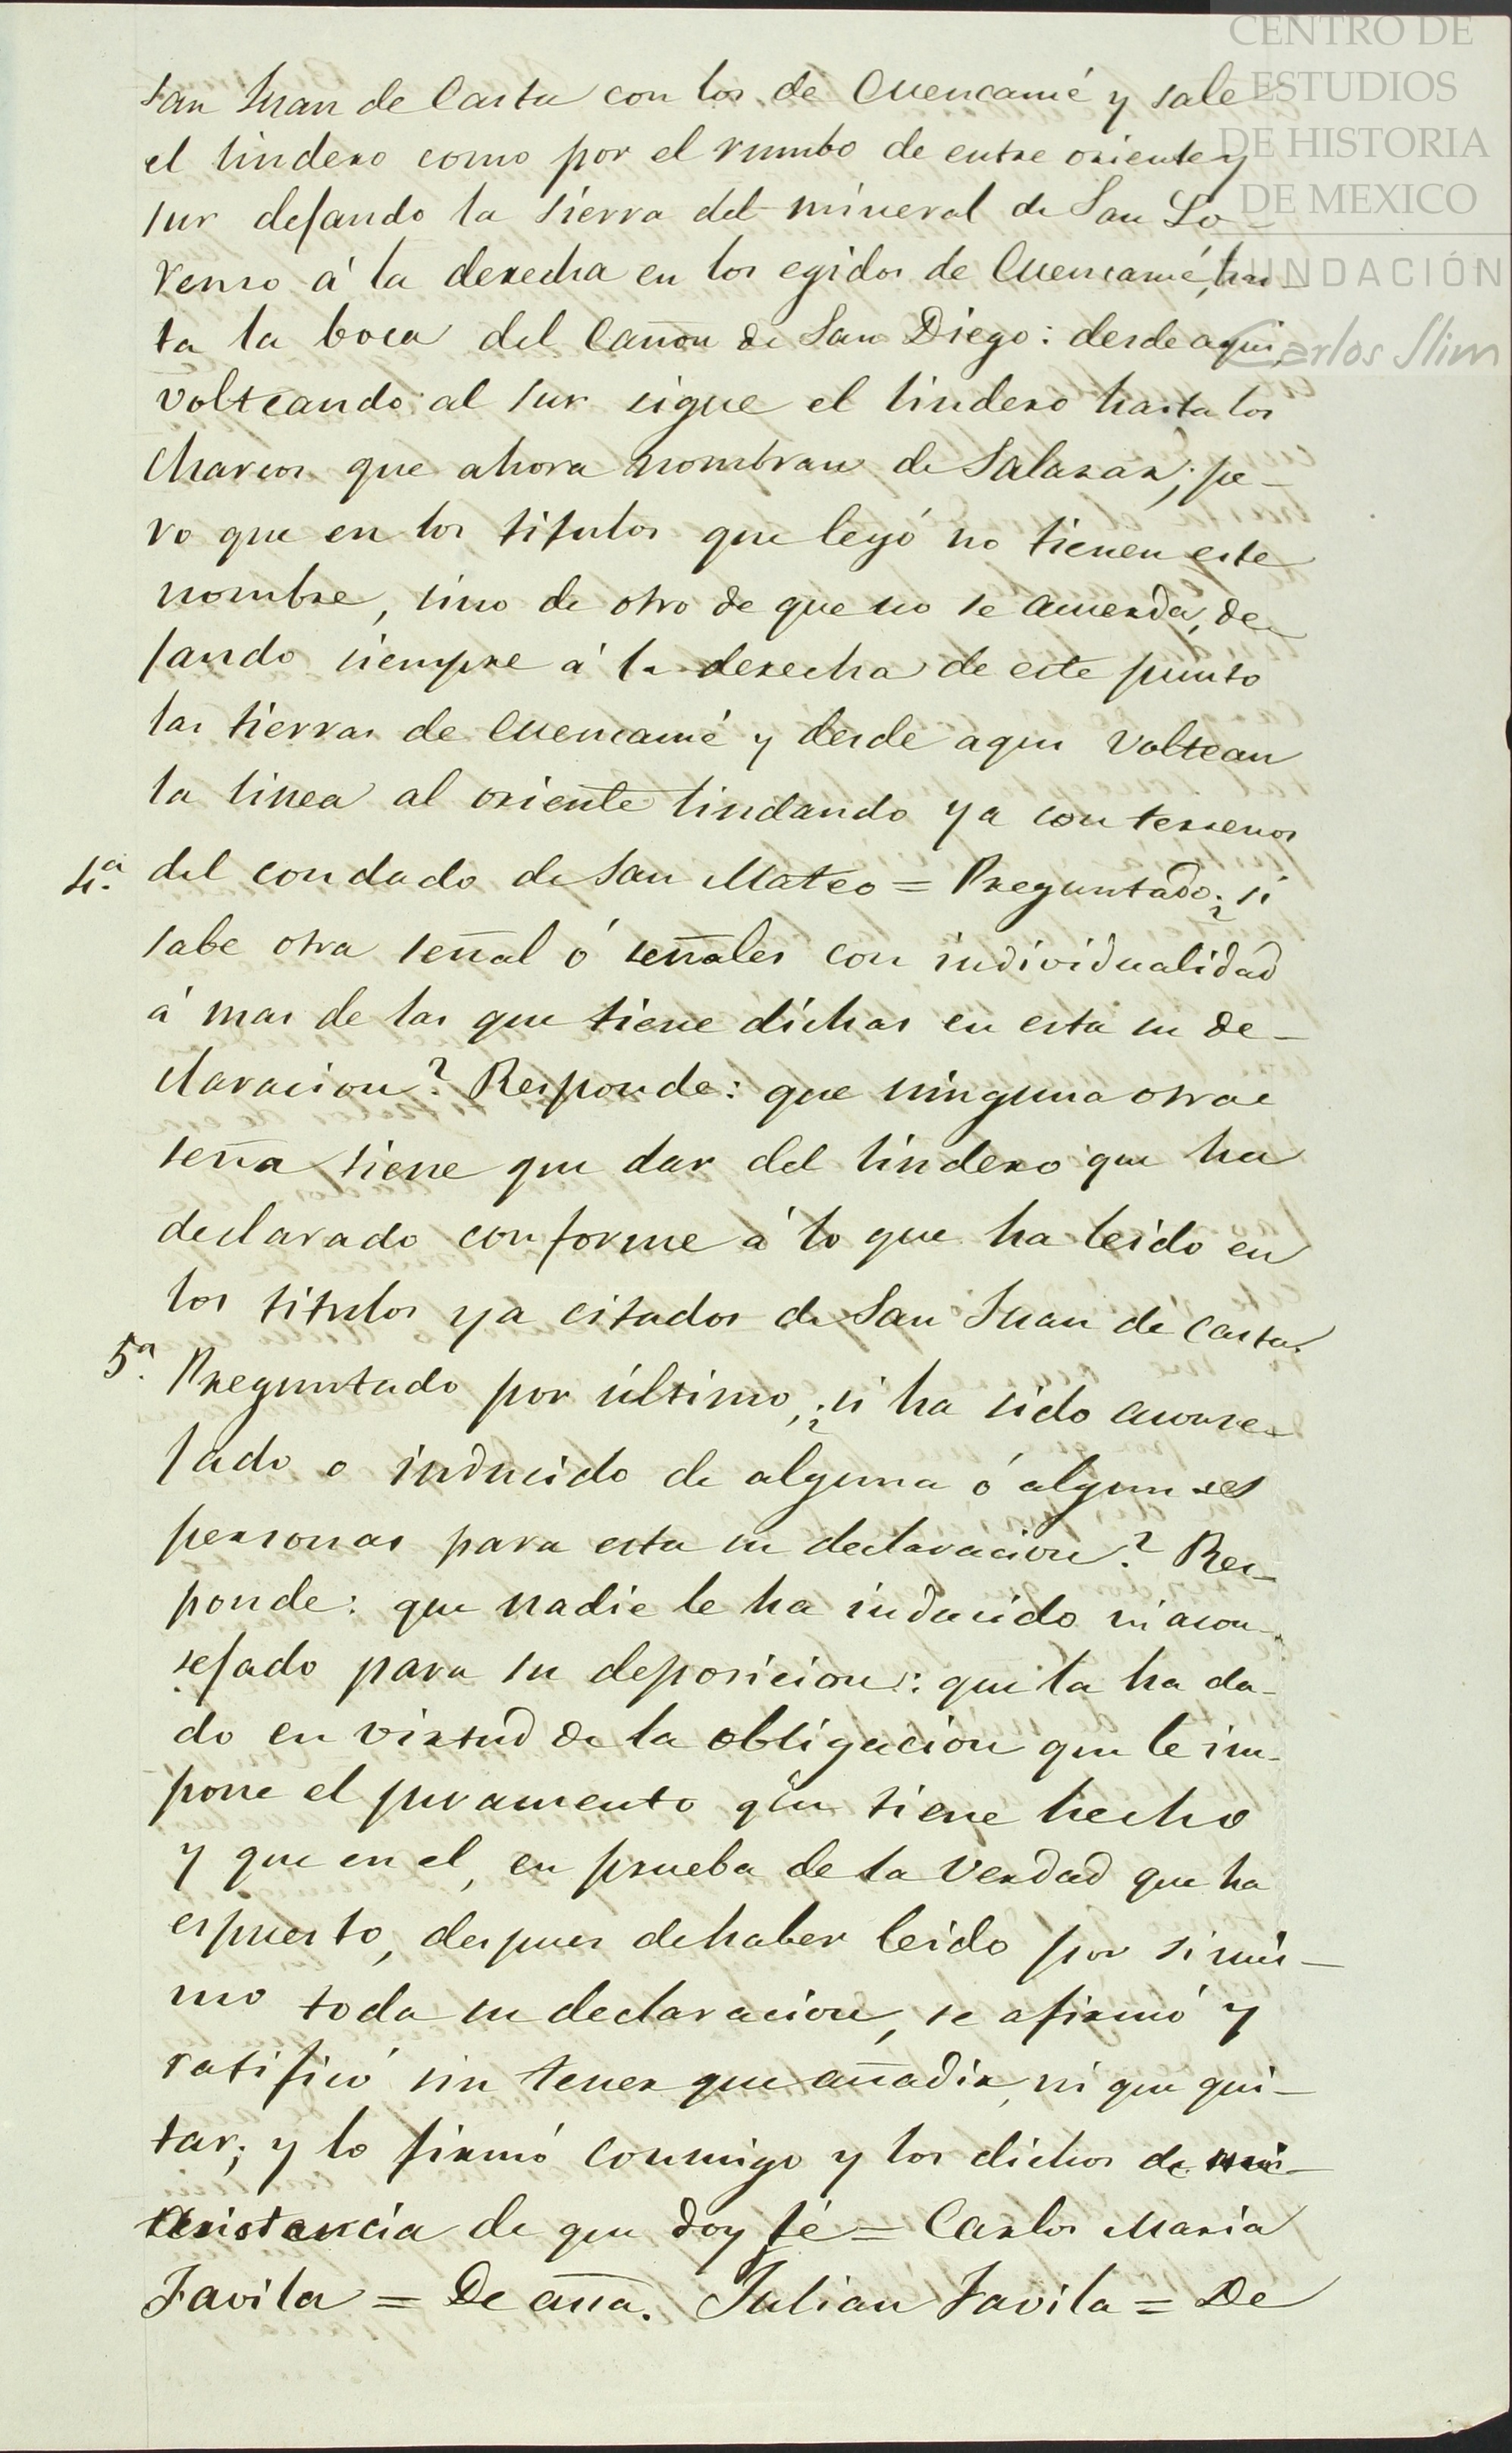 CENTRO DE
ESTUDIOS
DE HISTORIA
DE MEXICO
FUNDACIÓN
Carlos Slim
San Juan de Casta con los de Cuencamé y sale
el lindero como por el rumbo de entre oriente y
sur dejando la sierra del mineral de San Lo-
renso á la derecha en los egidos de Cuencamé, has-
ta la boca del Cañon de San Diego: desde aqui,
volteando al sur sigue el lindero hasta los
charcos que ahora nombran de Salazar; pe-
ro que en los titulos que leyó no tienen este
nombre, sino de otro de que no se acuerda, de-
jando siempre á la derecha de este punto
las tierras de Cuencamé y desde aqui voltean
la linea al oriente lindando ya con terrenos
4.ª del condado de San Mateo = Preguntado ¿si
sabe otra señal ó señales con individualidad
á mas de las que tiene dichas en esta su de-
claracion? Responde: que ninguna otra
seña tiene que dar del lindero que ha
declarado conforme á lo que ha leido en
los titulos ya citados de San Juan de Casta.
5.ª Preguntado por último, ¿si ha sido aconse-
jado o inducido de alguna ó algunas
personas para esta su declaracion? Res-
ponde: que nadie le ha inducido ni acon-
sejado para su deposicion: que la ha da-
do en virtud de la obligacion que le im-
pone el juramento que tiene hecho
y que en el, en prueba de la verdad que ha
espuesto, despues de haber leido por si mis-
mo toda su declaracion, se afirmó y
ratificó sin tener que añadir, ni que qui-
tar; y lo firmó conmigo y los dichos de mi
asistencia de que doy fé = Carlos Maria
Favila = De aña. Julian Favila = De